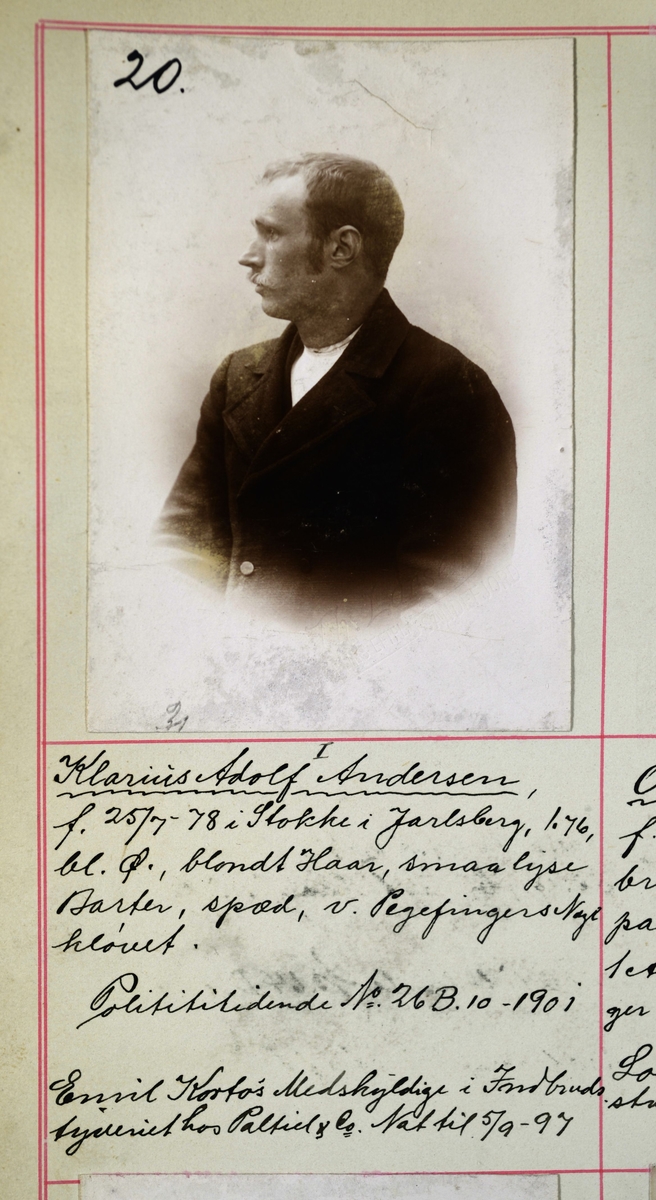 20.
I
Klarius Adolf Andersen,
f. 25/7-78 i Stokke i Jarlsberg, 1.76,
bl. Ø., blondt Haar, smaa lyse
Barter, spæd, v. Pegefingers Negl
kløvet.
Politititidende No. 26 B. 10 - 1901
Emil Korto's Medskyldige i Indbruds-
tyveriet hos Paltiel & Co. Nat til 5/9-97
f.
br
pa
ger